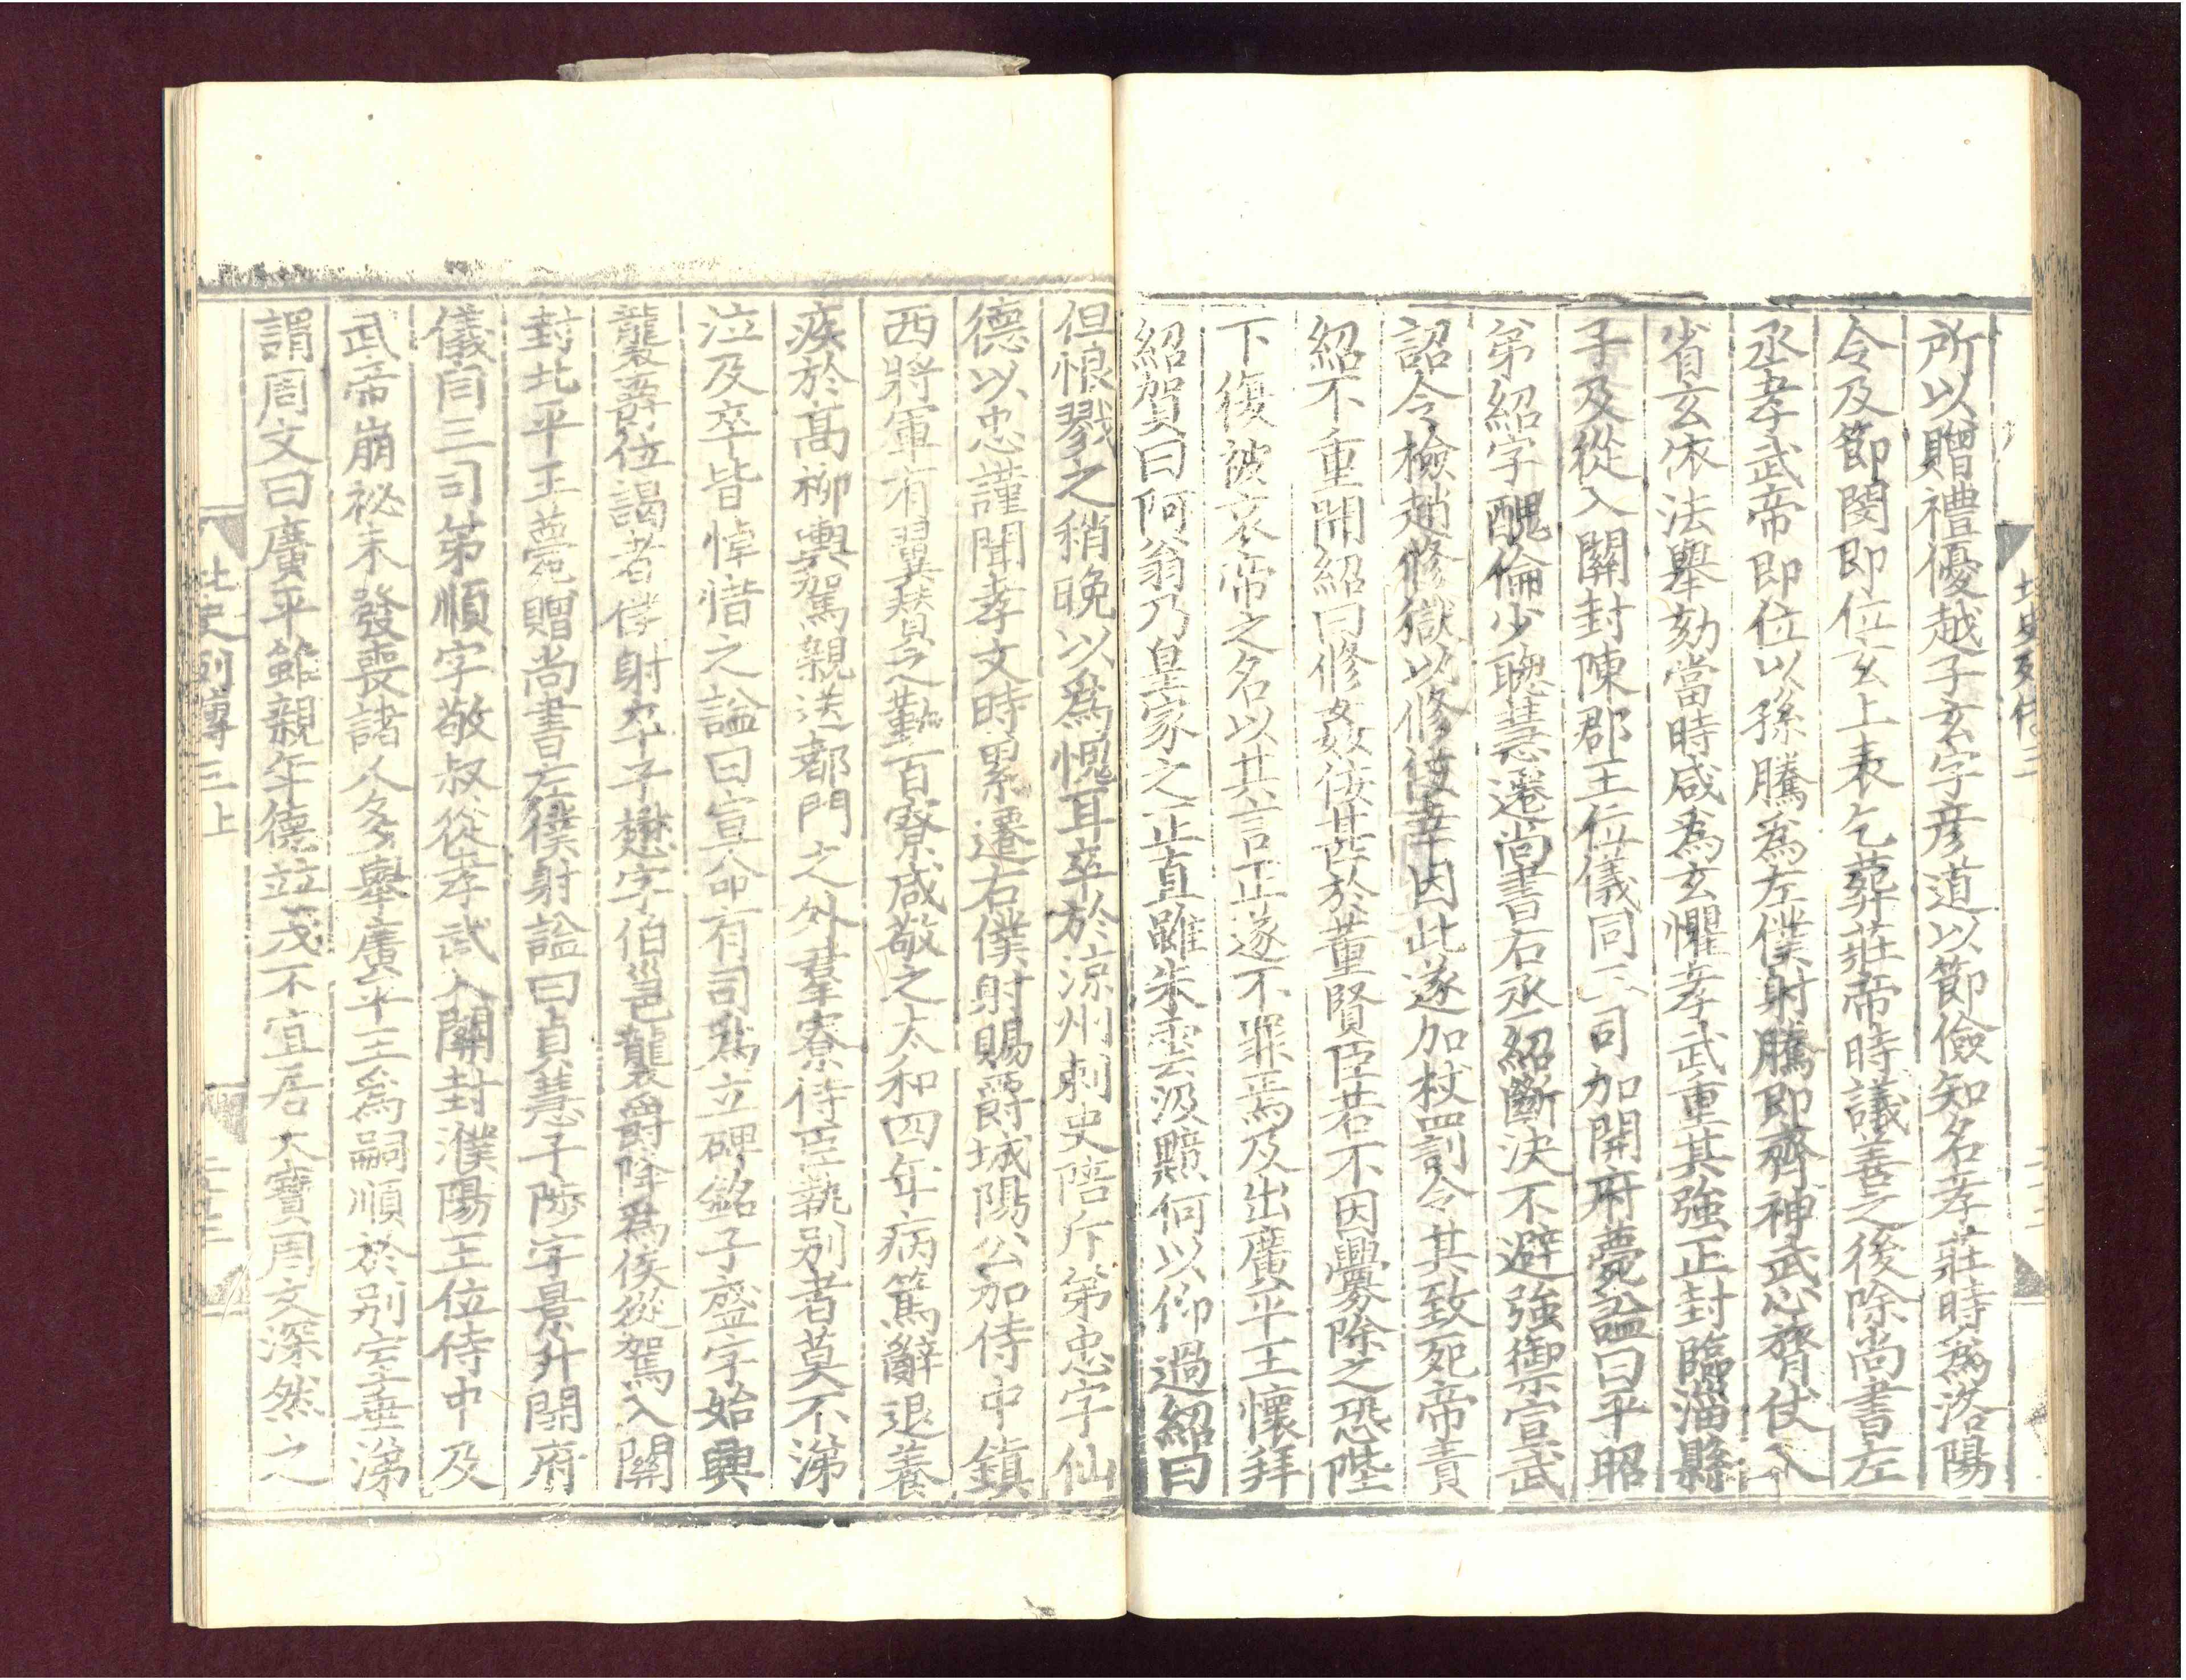 所以贈禮優越子玄字彦道以節儉知名孝莊時爲洛陽
令及節閔即位玄上表乞葬莊帝時議善之後除尚書左
丞孝武帝即位以孫騰爲左僕射騰即齊神武心膂仗入
省玄依法舉劾當時咸爲玄懼孝武重其強正封臨淄縣
子及從入關封陳郡王位儀同三司加開府薨謚曰平昭
弟紹字醜倫少聰慧遷尚書右丞紹斷決不避強御宣武
詔令檢趙修獄以修佞幸因此遂加杖罰令其致死帝責
紹不重聞紹曰修姦佞甚於董賢臣若不因釁除之恐陛
下復被哀帝之名以其言正遂不罪焉及出廣平王懷拜
紹賀曰阿翁乃皇家之正直雖朱雲汲黯何以仰過紹曰
但恨戮之稍晚以爲愧耳卒於涼州刺史陪斤弟忠字仙
德以忠謹聞孝文時累遷右僕射賜爵城陽公加侍中鎮
西將軍有翼賛之勤百寮咸敬之太和四年病篤辭退養
疾於高柳輿駕親送都門之外羣寮侍臣執別者莫不涕
泣及卒皆悼惜之謚曰宣命有司爲立碑銘子盛字始興
襲爵位謁者僕射卒子懋字伯邕襲爵降爲侯從駕入關
封北平王薨贈尚書左僕射謚曰貞慧子陟字景升開府
儀同三司弟順字敬叔從孝武入關封濮陽王位侍中及
武帝崩祕未發喪諸人多舉廣平王爲嗣順於別室垂涕
謂周文曰廣平雖親年德並茂不宜居大寶周文深然之
北史列傳三上